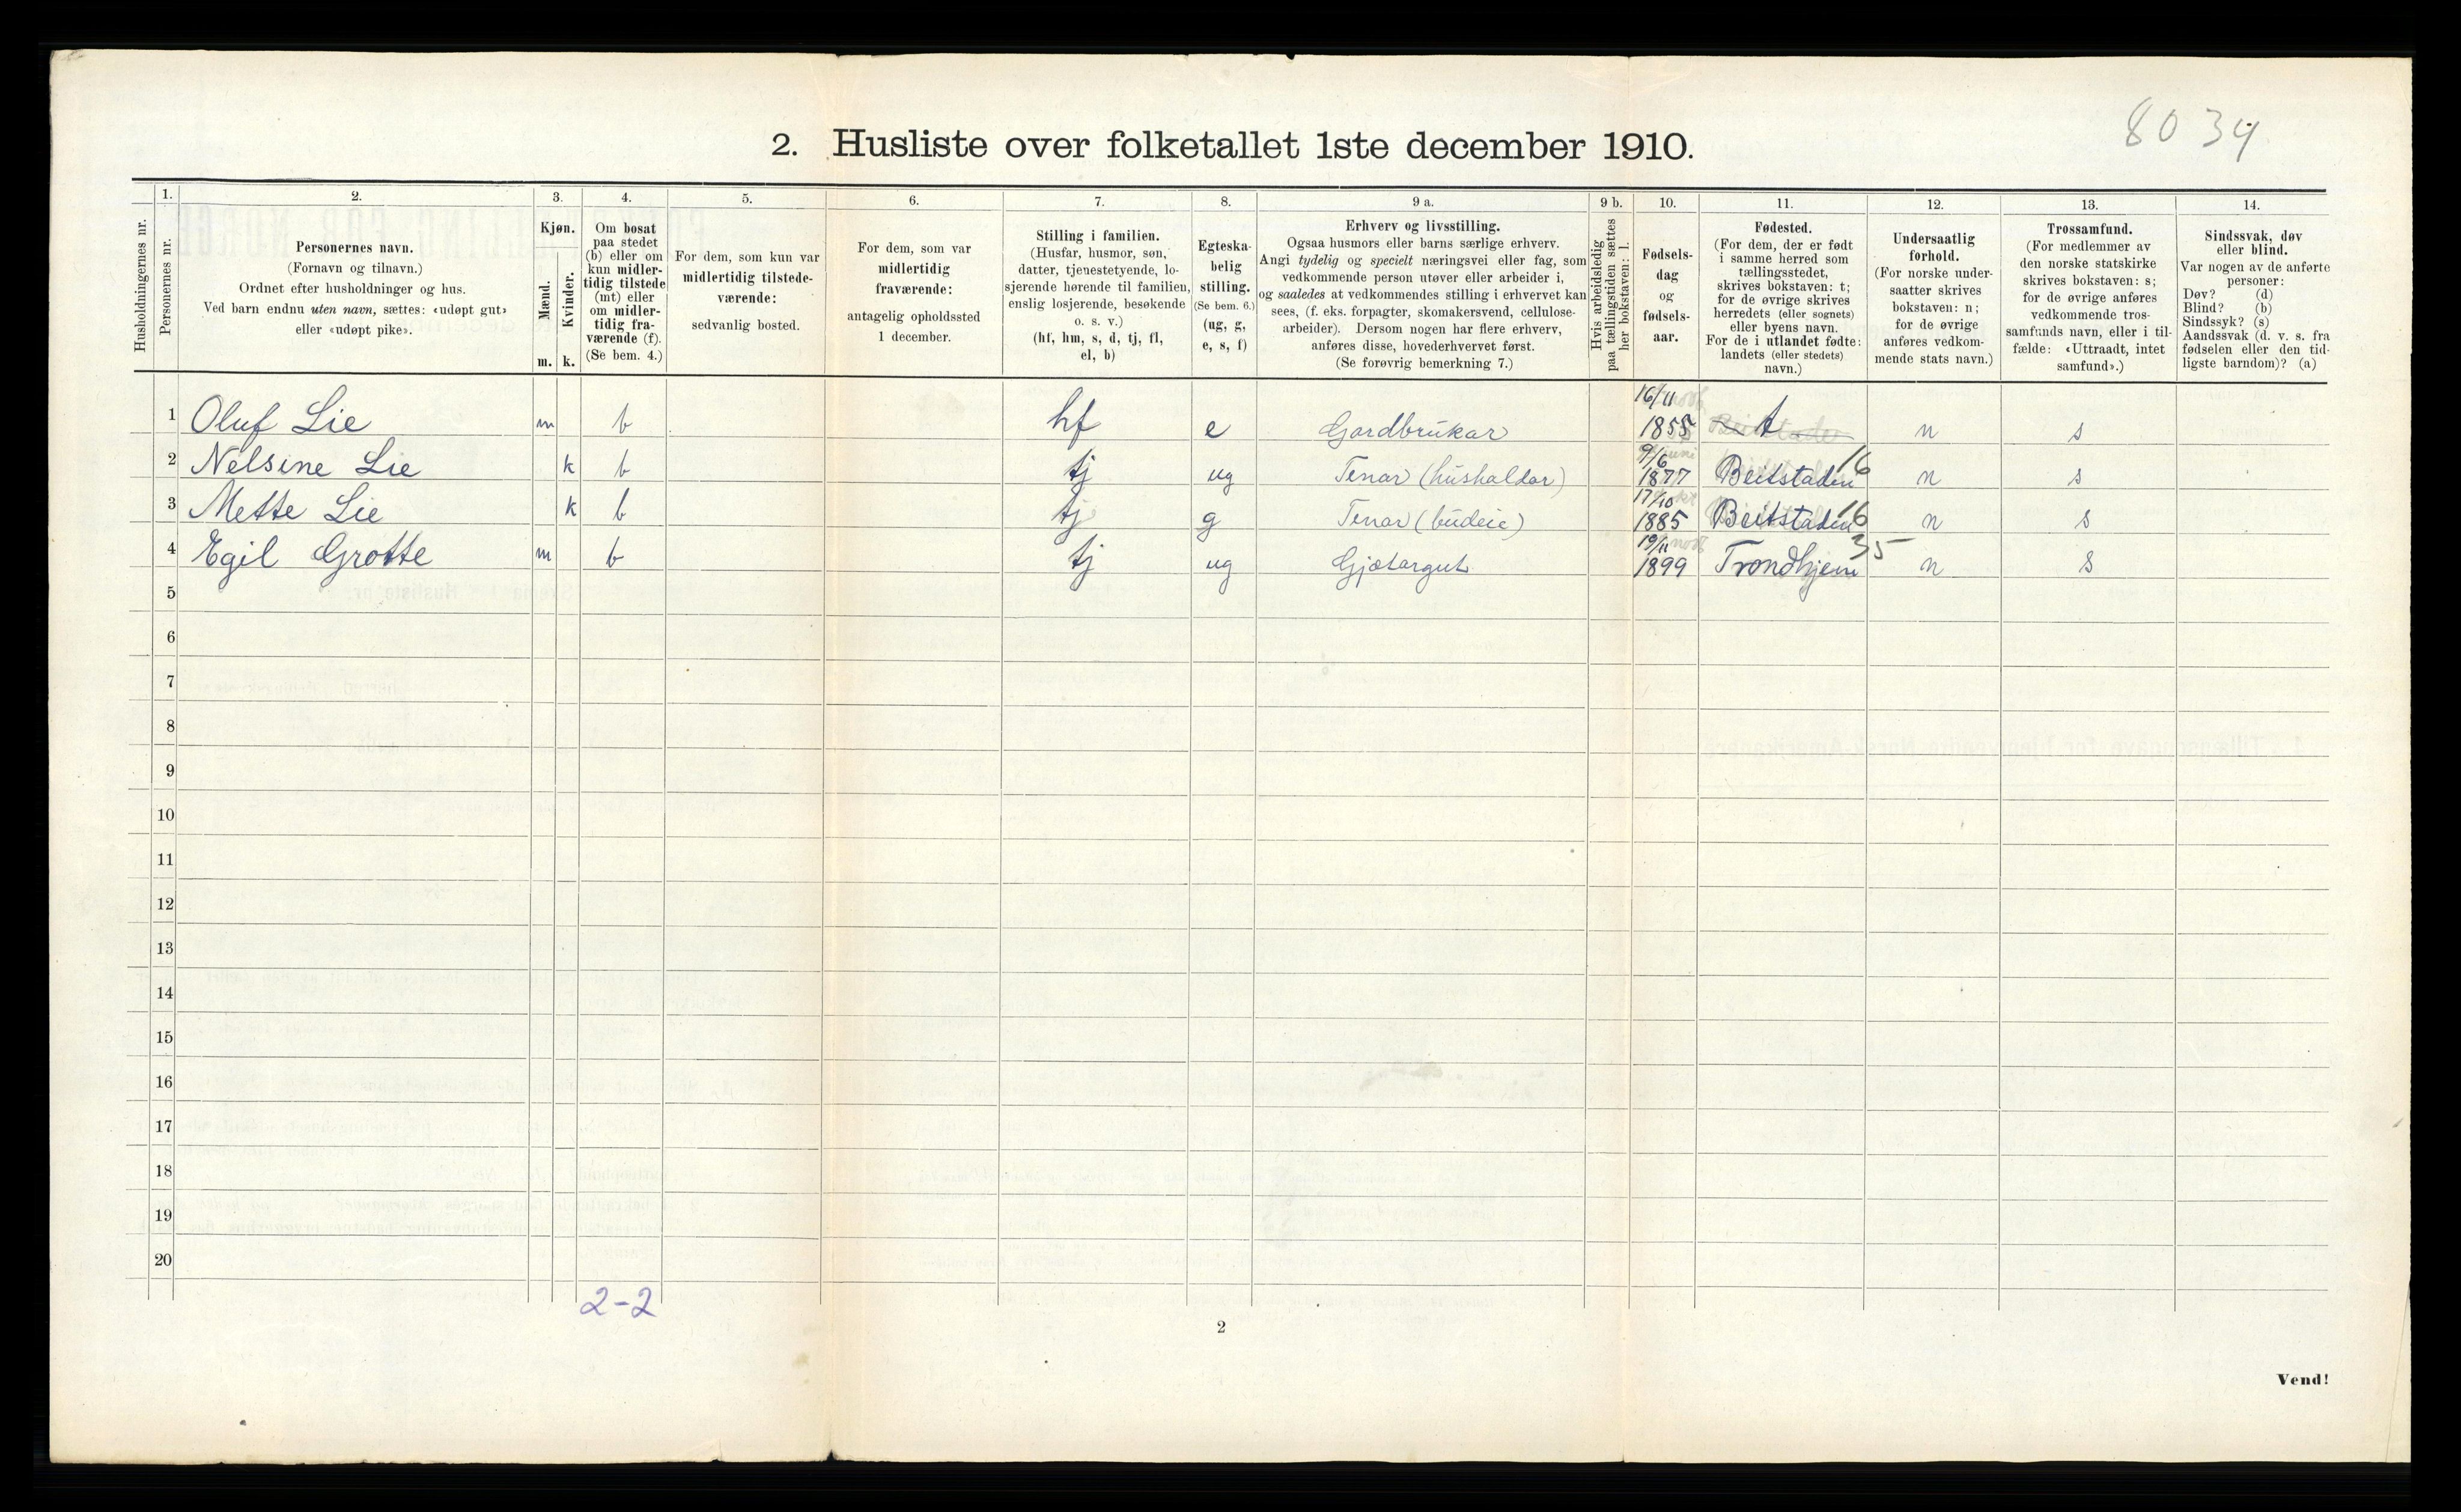 80 34
2. Husliste over folketallet 1ste december 1910.
Husholdningernes nr.
1. Personernes nr.
2. Personernes navn.
(Fornavn og tilnavn.)
Ordnet efter husholdninger og hus.
Ved barn endnu uten navn, sættes: «udøpt gut»
eller «udøpt pike».
3. Kjøn.
Mænd. m.
Kvinder. k.
4. Om bosat
paa stedet
(b) eller om
kun midler-
tidig tilstede
(mt) eller
om midler-
tidig fra-
værende (f).
(Se bem. 4.)
5. For dem, som kun var
midlertidig tilstede-
værende:
sedvanlig bosted.
6. For dem, som var
midlertidig
fraværende:
antagelig opholdssted
1 december.
7. Stilling i familien.
(Husfar, husmor, søn,
datter, tjenestetyende, lo-
sjerende hørende til familien,
enslig losjerende, besøkende
o. s. v.)
(hf, hm, s, d, tj, fl,
el, b)
8. Egteska-
belig
stilling.
(Se bem. 6.)
(ug, g,
e, s, f)
9 a. Erhverv og livsstilling.
Ogsaa husmors eller barns særlige erhverv.
Angi tydelig og specielt næringsvei eller fag, som
vedkommende person utøver eller arbeider i,
og saaledes at vedkommendes stilling i erhvervet kan
sees, (f. eks. forpagter, skomakersvend, cellulose-
arbeider). Dersom nogen har flere erhverv,
anføres disse, hovederhvervet først.
(Se forøvrig bemerkning 7.)
9 b. Hvis arbeidsledig
paa tællingstiden sættes
her bokstaven: l.
10. Fødsels-
dag
og
fødsels-
aar.
11. Fødested.
(For dem, der er født
i samme herred som
tællingsstedet,
skrives bokstaven: t;
for de øvrige skrives
herredets (eller sognets)
eller byens navn.
For de i utlandet fødte:
landets (eller stedets)
navn.)
12. Undersaatlig
forhold.
(For norske under-
saatter skrives
bokstaven: n;
for de øvrige
anføres vedkom-
mende stats navn.)
13. Trossamfund.
(For medlemmer av
den norske statskirke
skrives bokstaven: s;
for de øvrige anføres
vedkommende tros-
samfunds navn, eller i til-
fælde: «Uttraadt, intet
samfund».)
14. Sindssvak, døv
eller blind.
Var nogen av de anførte
personer:
Døv? (d)
Blind? (b)
Sindssyk? (s)
Aandssvak (d. v. s. fra
fødselen eller den tid-
ligste barndom)? (a)
1 Oluf Lie m b hf e Gardbrukar 16/11 1855 t n s
2 Nelsine Lie k b tj ug Tenar (hushaldar) 9/6 1877 Beitstaden 16 n s
3 Mette Lie k b tj g Tenar (budeie) 17/10 1885 Beitstaden 16 n s
4 Egil Grotte m b tj ug Gjætargut 19/11 1899 Trondhjem 35 n s
5
6
7
8
9
10
11
12
13
14
15
16
17
18
19
20
2-2
2
Vend!